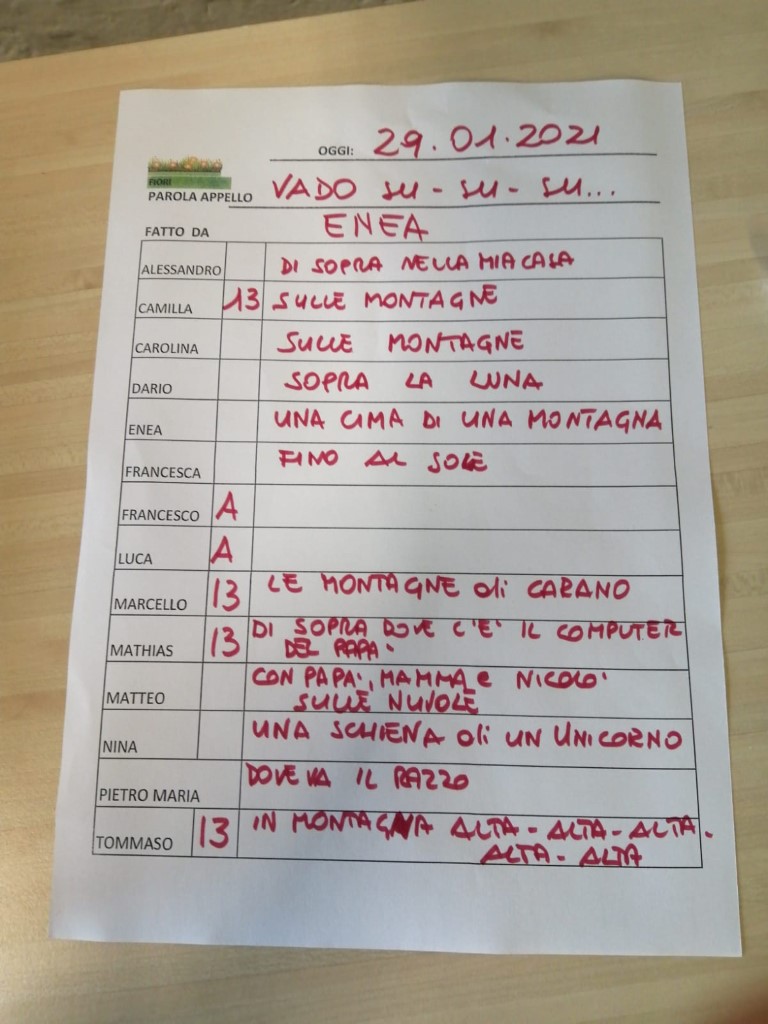 OGGI: 29.01.2021
FIORI
PAROLA APPELLO VADO SU - SU - SU...
FATTO DA ENEA
ALESSANDRO DI SOPRA NELLA MIA CASA
CAMILLA 13 SULLE MONTAGNE
CAROLINA SULLE MONTAGNE
DARIO SOPRA LA LUNA
ENEA UNA CIMA DI UNA MONTAGNA
FRANCESCA FINO AL SOLE
FRANCESCO A
LUCA A
MARCELLO 13 LE MONTAGNE di CARANO
MATHIAS 13 DI SOPRA DOVE C'E' IL COMPUTER
DEL PAPA'
MATTEO CON PAPA', MAMMA e NICOLO'
SULLE NUVOLE
NINA UNA SCHIENA di UN UNICORNO
PIETRO MARIA DOVE VA IL RAZZO
TOMMASO 13 IN MONTAGNA ALTA - ALTA - ALTA -
ALTA - ALTA